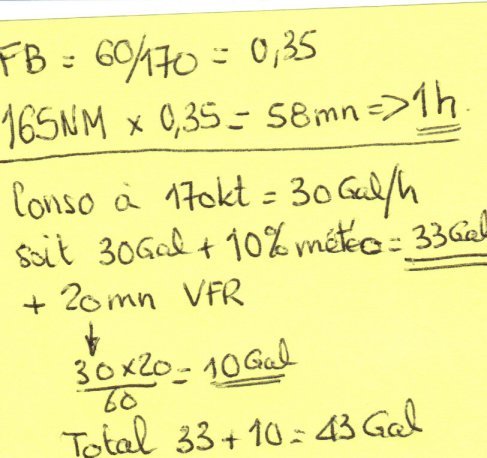 FB = 60/170 = 0,35
165NM x 0,35 = 58mn => 1h.
Conso à 170kt = 30Gal/h
soit 30Gal + 10% météo = 33Gal
+ 20mn VFR
↓
30x20/60 = 10Gal
Total 33+10 = 43Gal